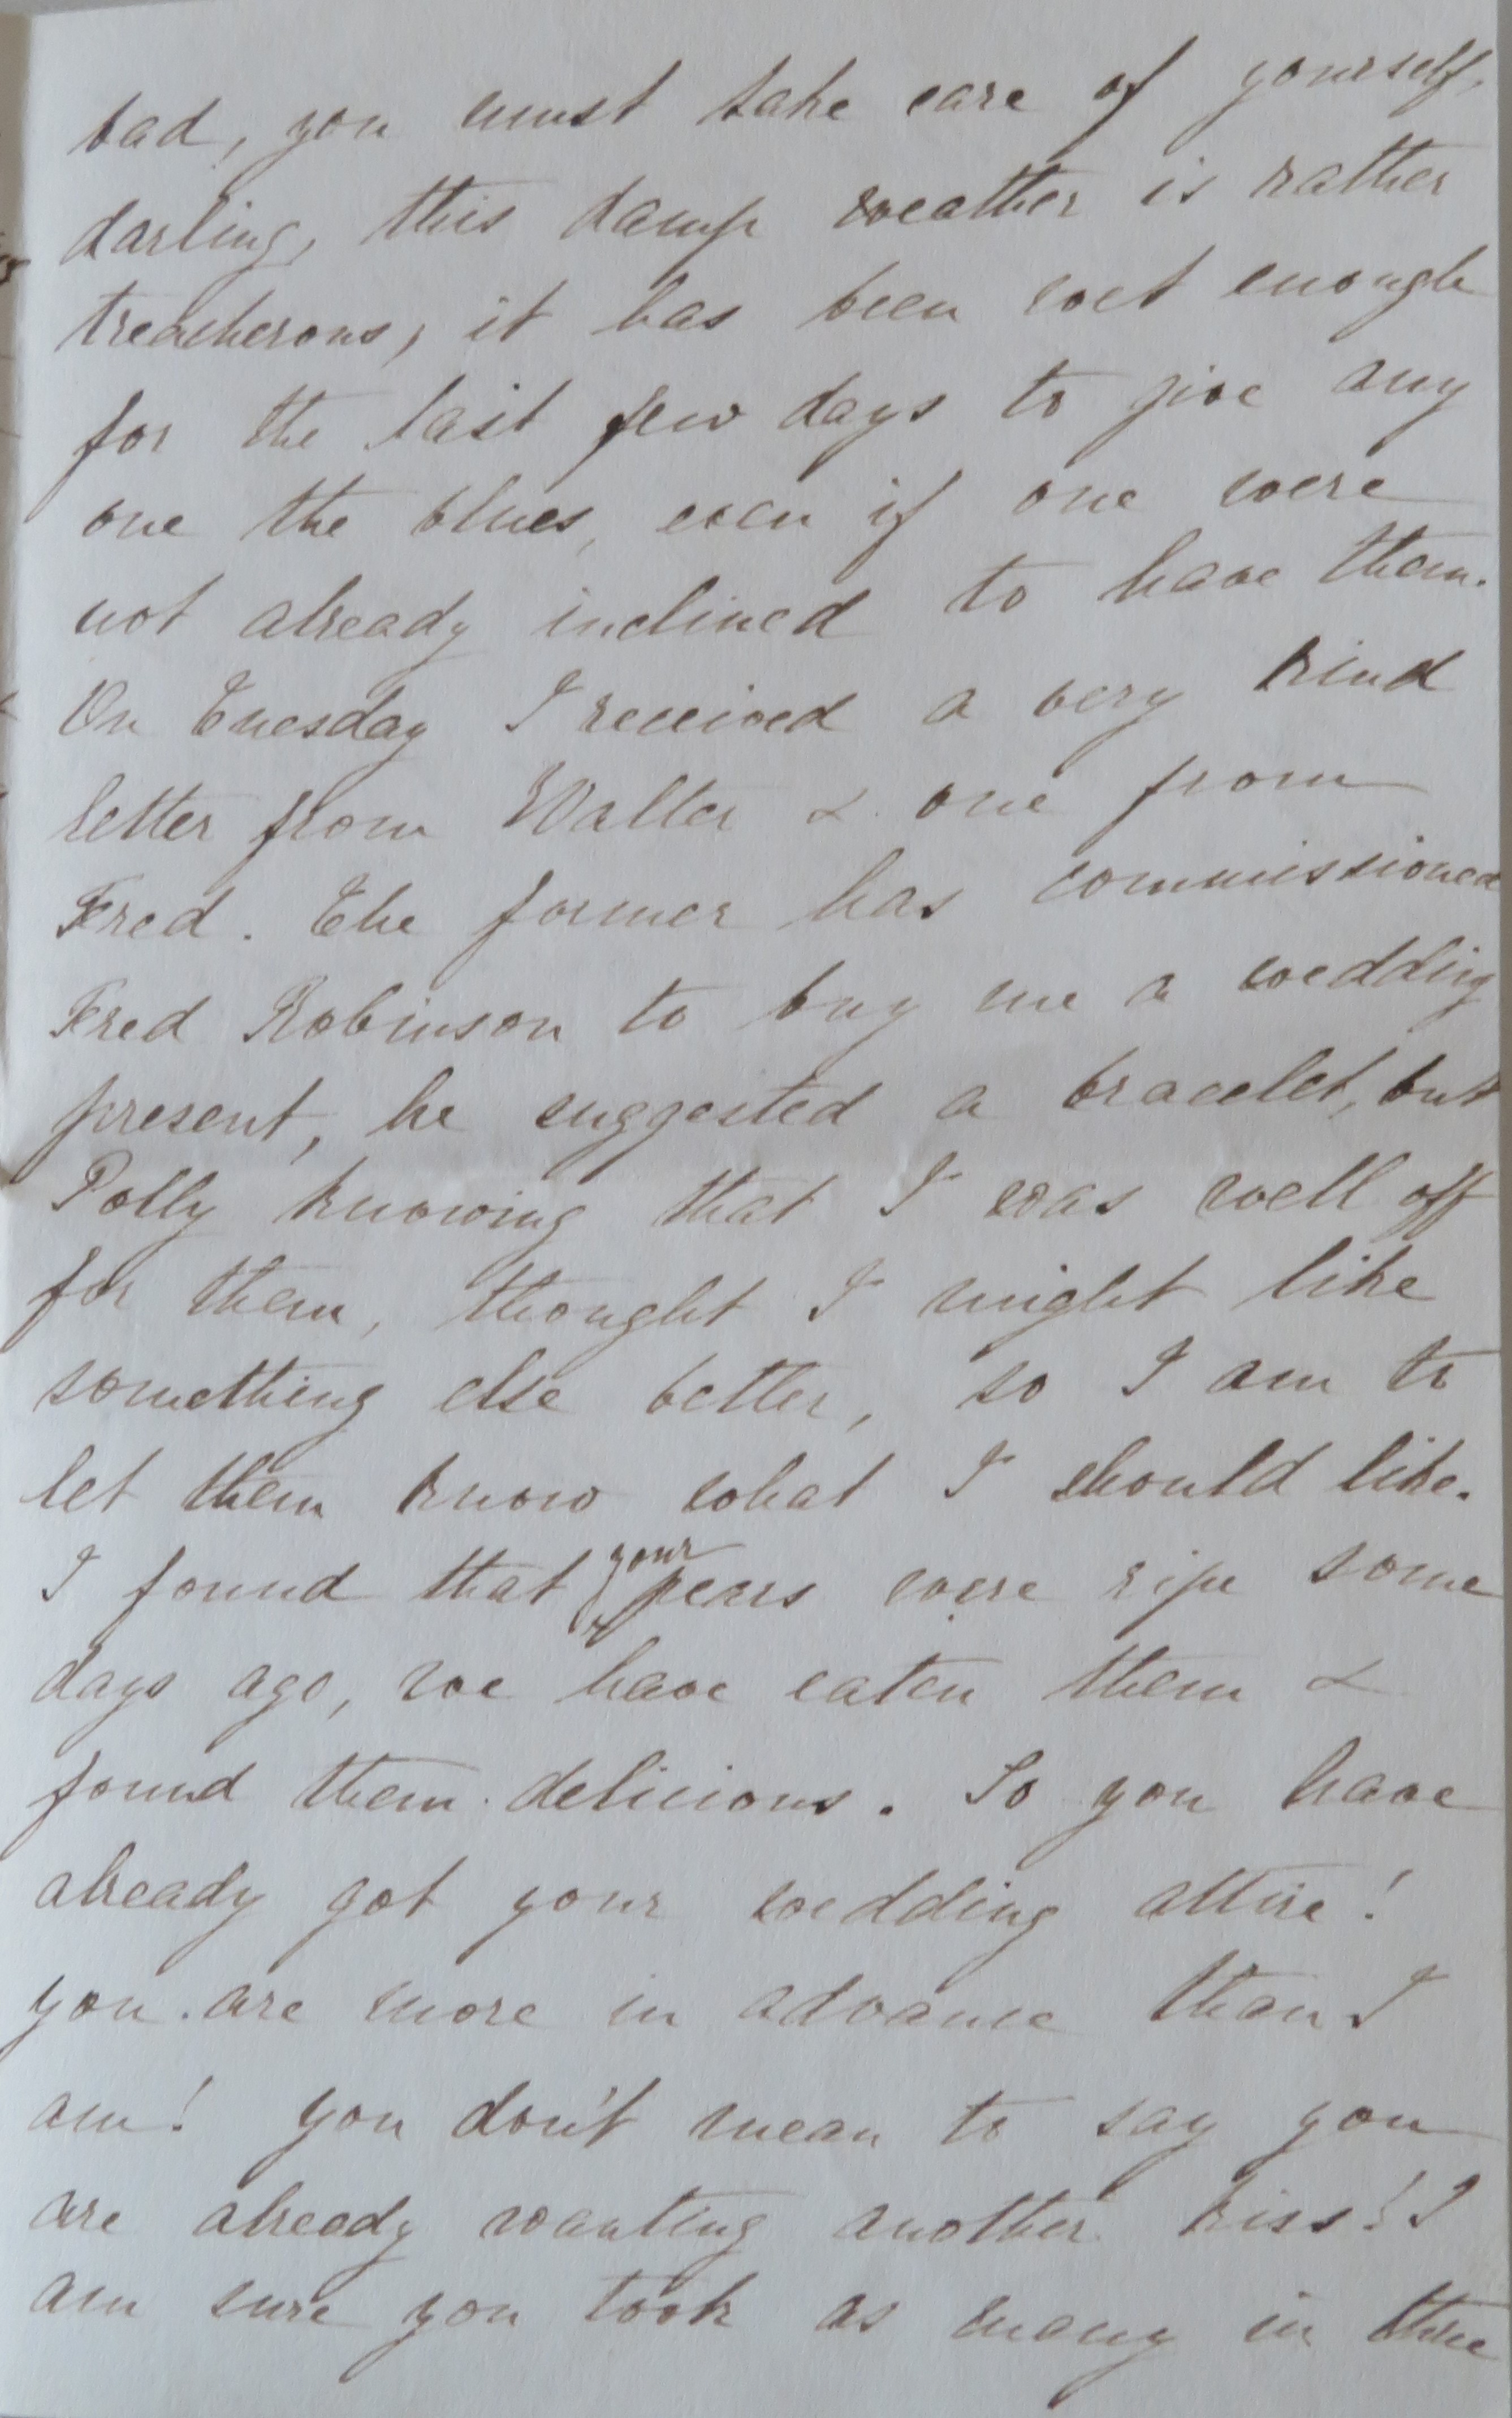 bad, you must take care of yourself,
darling, this damp weather is rather
treacherous, it has been wet enough
for the last few days to give any
one the blues, even if one were
not already inclined to have them.
On Tuesday I received a very kind
letter from Walter & one from
Fred. The former has commissioned
Fred Robinson to buy me a wedding
present, he suggested a bracelet, but
Polly knowing that I was well off
for them, thought I might like
something else better, so I am to
let them know what I should like.
I found that your pears were ripe some
days ago, we have eaten them &
found them delicious. So you have
already got your wedding attire!
you are more in advance than I
am! you don't mean to say you
are already wanting another kiss! I
am sure you took as many in three